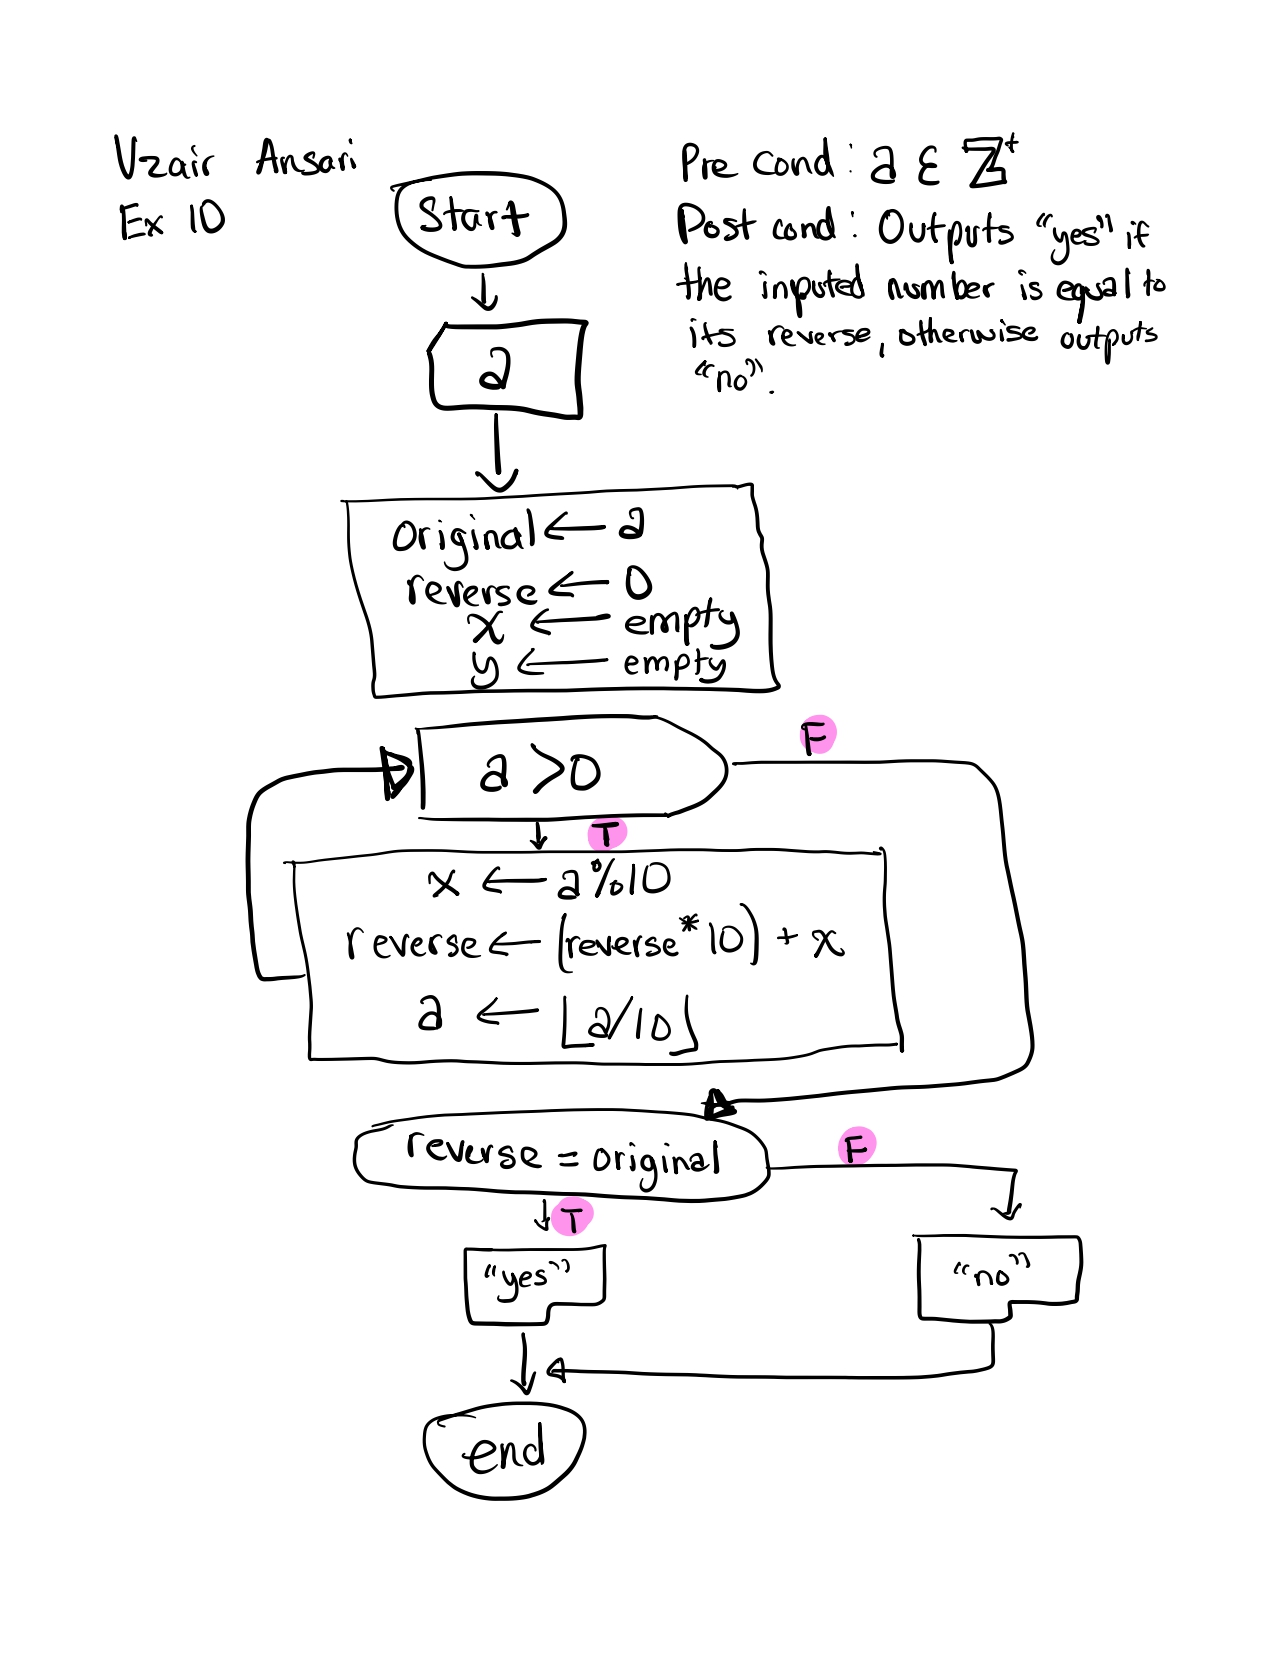 Uzair Ansari
Ex 10
Pre Cond: a ε ℤ⁺
Post cond: Outputs "yes" if
the inputed number is equal to
its reverse, otherwise outputs
"no".
Start
a
original ← a
reverse ← 0
x ← empty
y ← empty
a > 0
F
T
x ← a % 10
reverse ← (reverse * 10) + x
a ← ⌊a/10⌋
reverse = original
F
T
"yes"
"no"
end